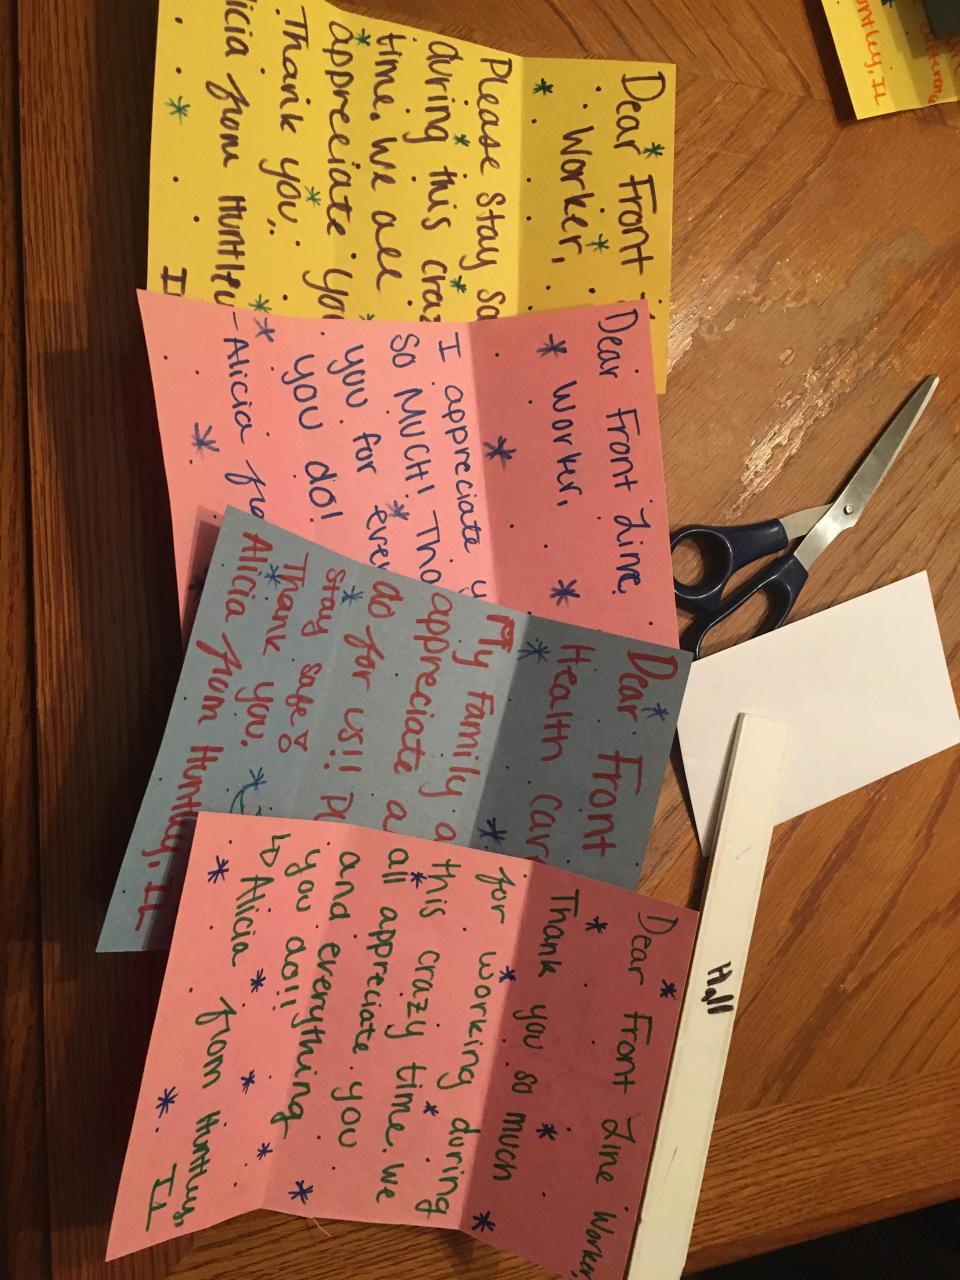 Dear Front
Worker,
Please Stay
during this
time. We all
appreciate
Thank you.
from Huntley
Dear Front Line
Worker,
I appreciate
SO MUCH!
you for
you do!
-Alicia
Dear Front
Health
My Family
appreciate
do for us!!
stay safe
Thank you.
Alicia from Huntley, IL
Dear Front Line Worker,
Thank you so much
for working during
this crazy time. We
all appreciate you
and everything
you do!!
Alicia from Huntley, IL
Hall
Huntley, IL